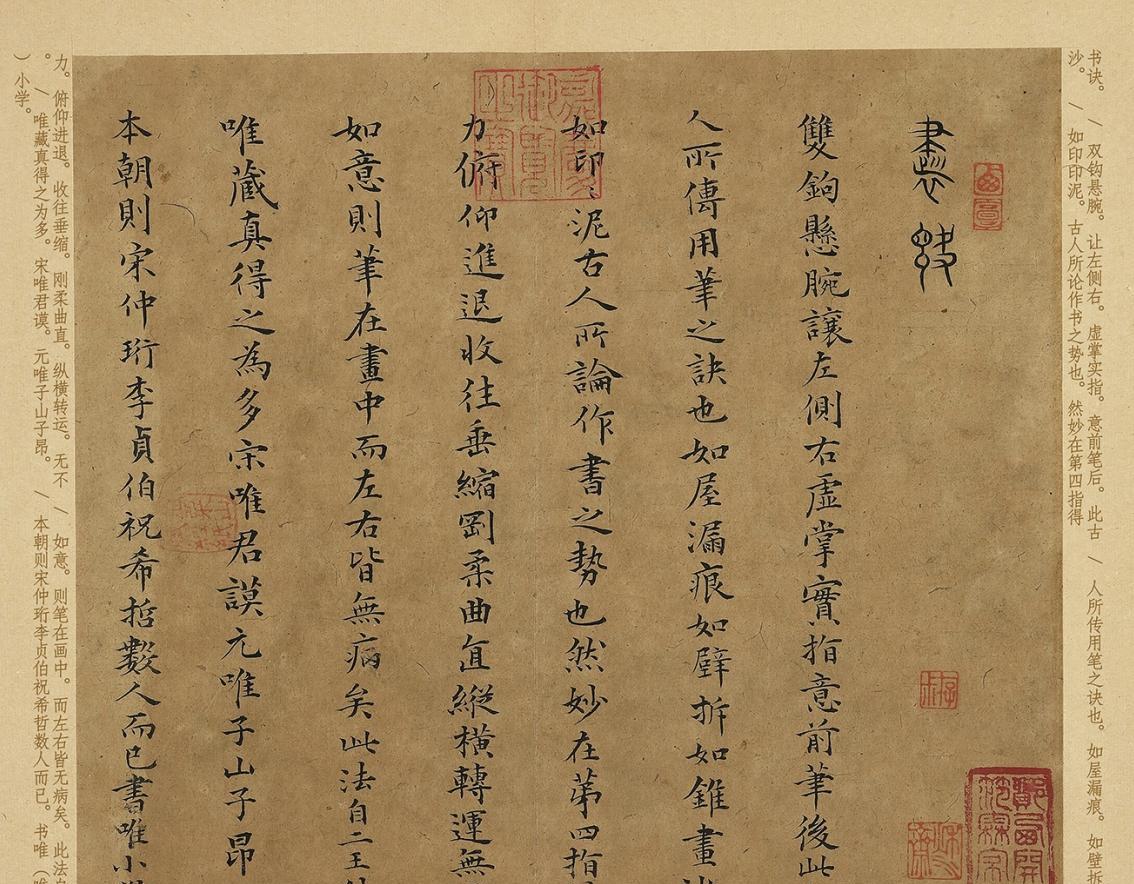 书诀。／双钩悬腕。让左侧右。虚掌实指。意前笔后。此古／人所传用笔之诀也。如屋漏痕。如壁拆
沙。／如印印泥。古人所论作书之势也。然妙在第四指得
書訣
雙鉤懸腕讓左側右虛掌實指意前筆後此
人所傳用筆之訣也如屋漏痕如壁拆如錐畫
如印〻泥古人所論作書之勢也然妙在苐四指
力俯仰進退收往垂縮剛柔曲直縱橫轉運無
如意則筆在畫中而左右皆無病矣此法自二王
唯藏真得之為多宋唯君謨元唯子山子昂
本朝則宋仲珩李貞伯祝希哲數人而已書唯小
力。俯仰进退。收往垂缩。刚柔曲直。纵横转运。无不／如意。则笔在画中。而左右皆无病矣。此法自
。／唯藏真得之为多。宋唯君谟。元唯子山子昂。／本朝则宋仲珩李贞伯祝希哲数人而已。书唯（唯
）小学。